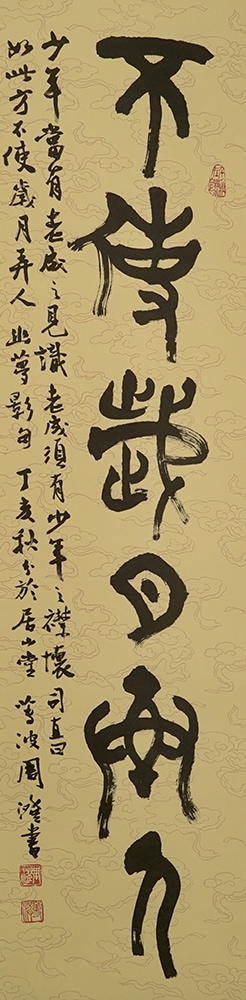 不使歲月弄人
少年當有老成之見識老成須有少年之襟懷司直曰
如此方不使歲月弄人幽夢影句丁亥秋分於居山堂波周書